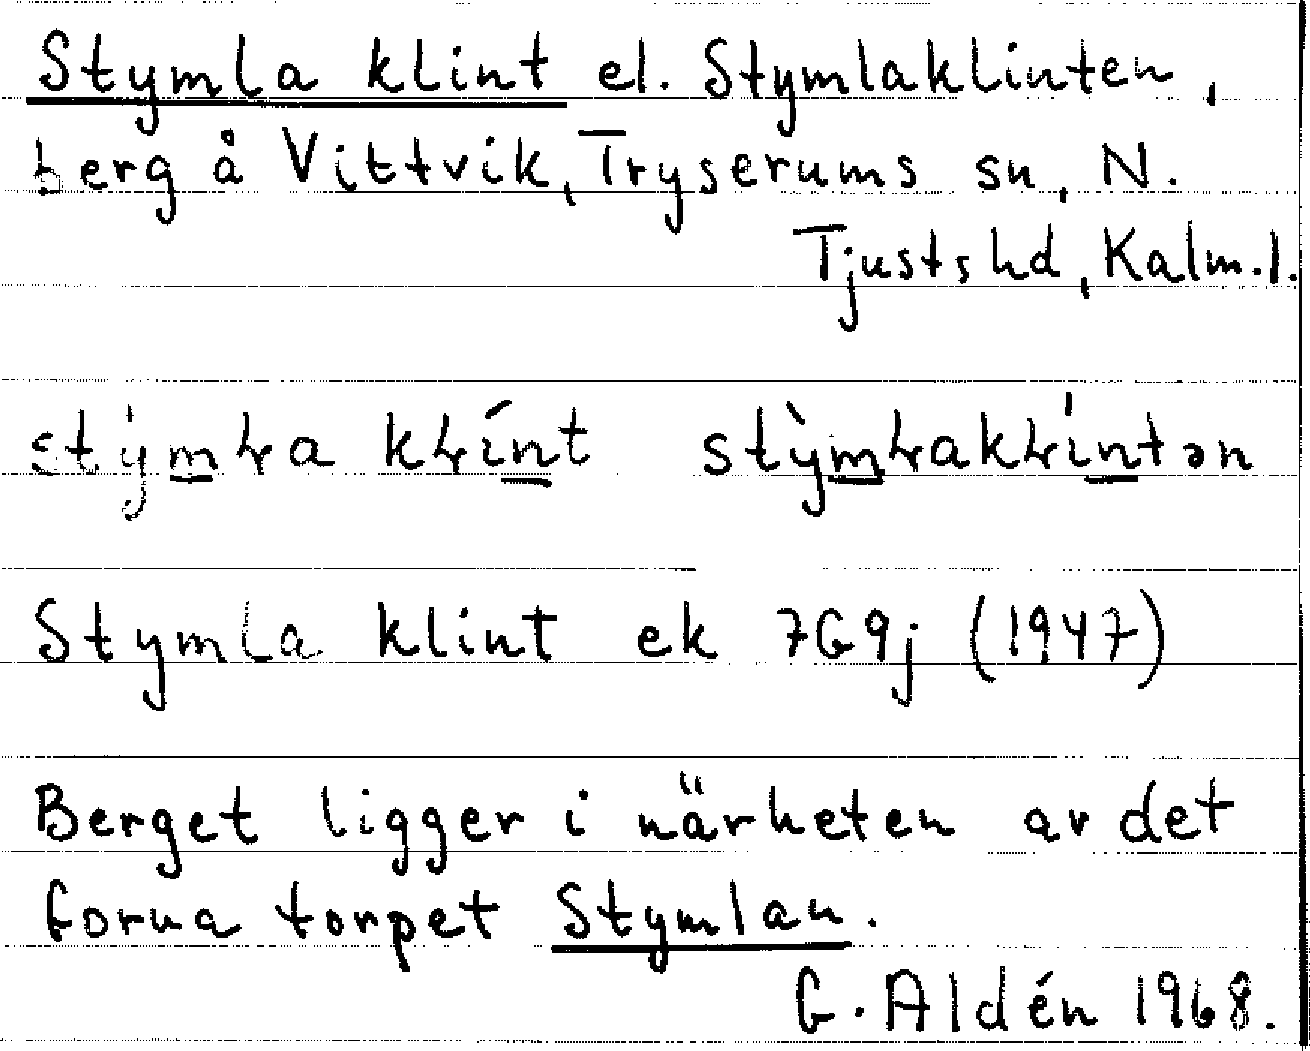 Stymla klint el. Stymlaklinten,
berg å Vittvik, Tryserums sn, N.
Tjusts hd, Kalm.l.
stým̲ɫa kɫín̲t stỳm̲ɫakɫiń̲tən
Stymla klint ek 7G9j (1947)
Berget ligger i närheten av det
forna torpet Stymlan.
G. Aldén 1968.